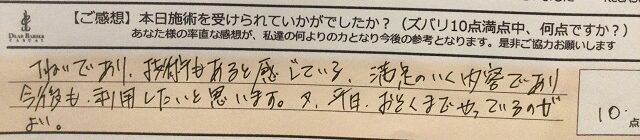 DEAR BARBER
CASUAL
【ご感想】本日施術を受けられていかがでしたか?(ズバリ10点満点中、何点ですか?)
あなた様の率直な感想が、私達の何よりの力となり今後の参考となります。是非ご協力お願いします
ていねいであり、技術もあると感じている、満足のいく内容であり
今後も、利用したいと思います。夕、平日、おそくまでやっているのが
よい。
10点